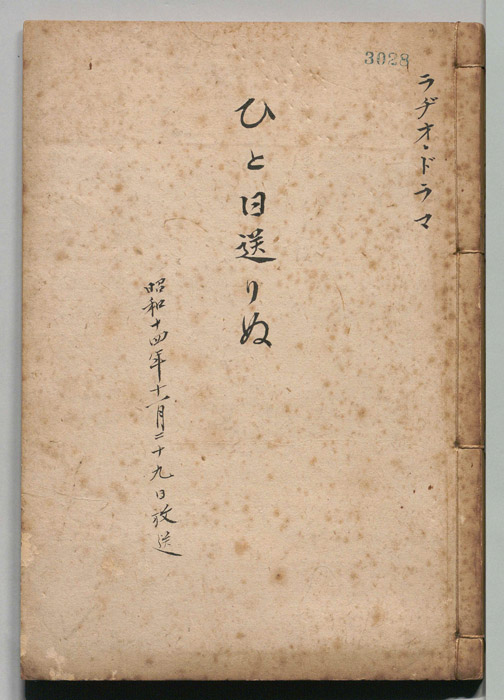 3028
ラヂオ・ドラマ
ひと日送りぬ
昭和十四年十一月二十九日放送